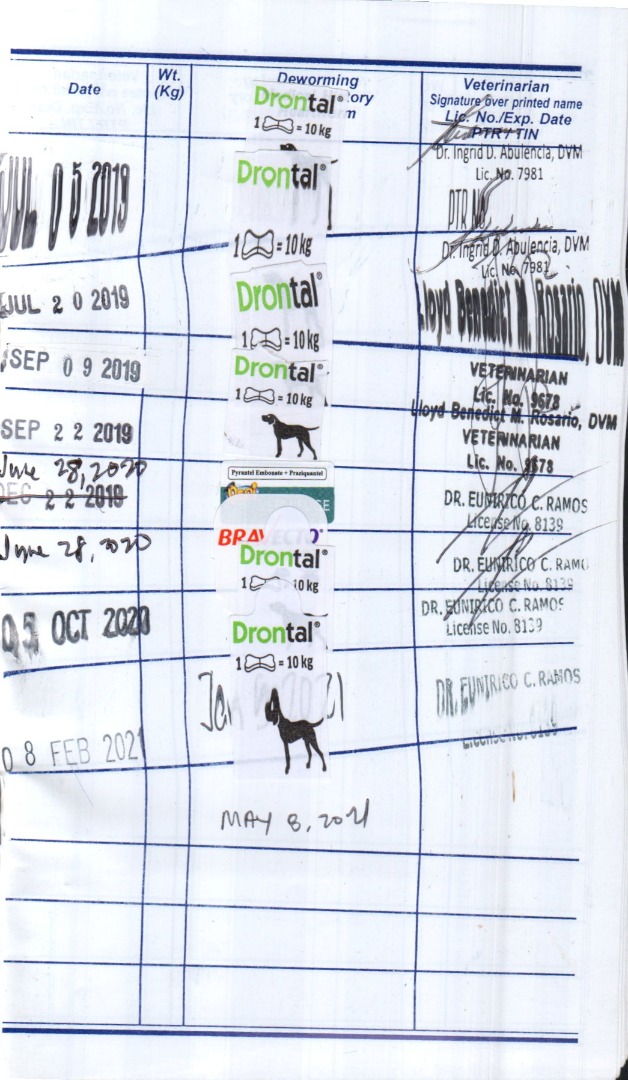 Date
Wt.
(Kg)
Deworming
Veterinarian
Signature over printed name
Lic. No./Exp. Date
PTR / TIN
Drontal®
1 = 10 kg
Dr. Ingrid D. Abulencia, DVM
Lic. No. 7981
JUL 05 2019
Drontal®
1 = 10 kg
PTR No
Dr. Ingrid D. Abulencia, DVM
Lic. No. 7981
JUL 20 2019
Drontal®
1 = 10 kg
Lloyd Benedict M. Rosario, DVM
VETERINARIAN
Lic. No. 9678
SEP 09 2019
Drontal®
1 = 10 kg
Lloyd Benedict M. Rosario, DVM
VETERINARIAN
Lic. No. 9678
SEP 22 2019
June 28, 2020
DEC 22 2019
Pyrantel Embonate + Praziquantel
DR. EUNIRICO C. RAMOS
License No. 8139
June 28, 2020
BRAVECTO
Drontal®
1 = 10 kg
DR. EUNIRICO C. RAMO
License No. 8139
05 OCT 2020
Drontal®
1 = 10 kg
DR. EUNIRICO C. RAMOS
License No. 8139
08 FEB 2021
DR. EUNIRICO C. RAMOS
License No. 8139
MAY 8, 2021